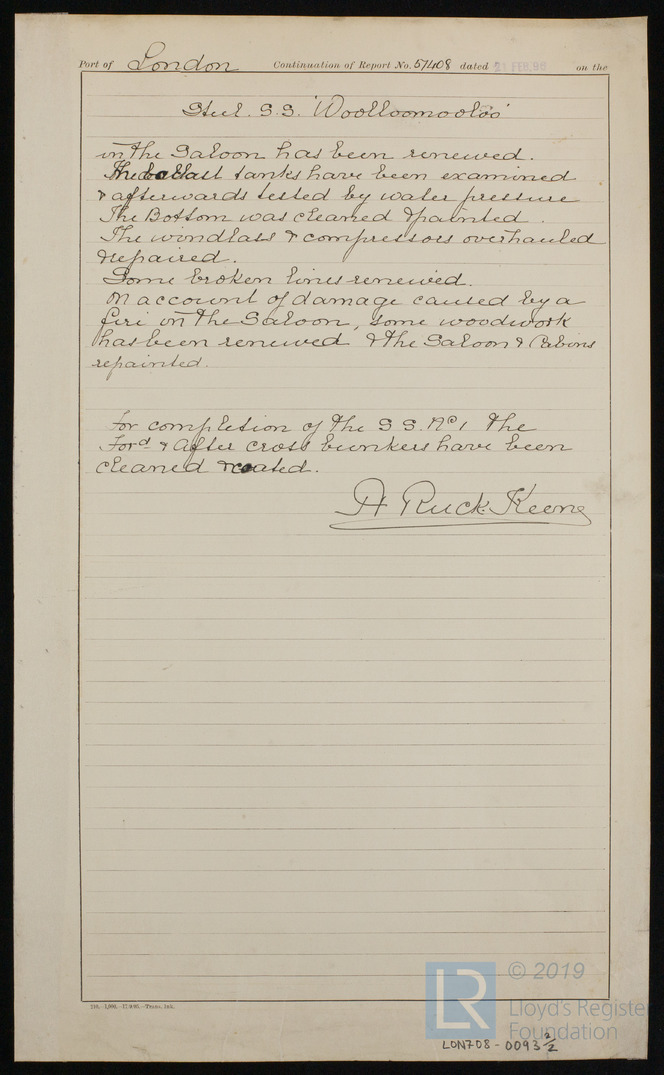 Port of London Continuation of Report No. 51408 dated 21 FEB. 96 on the
Steel S.S. 'Woolloomooloo'
in the Saloon has been renewed.
The ballast tanks have been examined
& afterwards tested by water pressure
The Bottom was cleaned & painted.
The windlass & compressors overhauled
& repaired.
Some broken lines renewed.
On account of damage caused by a
fire in the Saloon, some woodwork
has been renewed & the Saloon & Cabins
repainted.
For completion of the S S. No 1 the
Ford & After cross bunkers have been
cleaned & coated.
A Ruck-Keene
© 2019
Lloyd's Register
Foundation
LR
LON708-0093 2/2